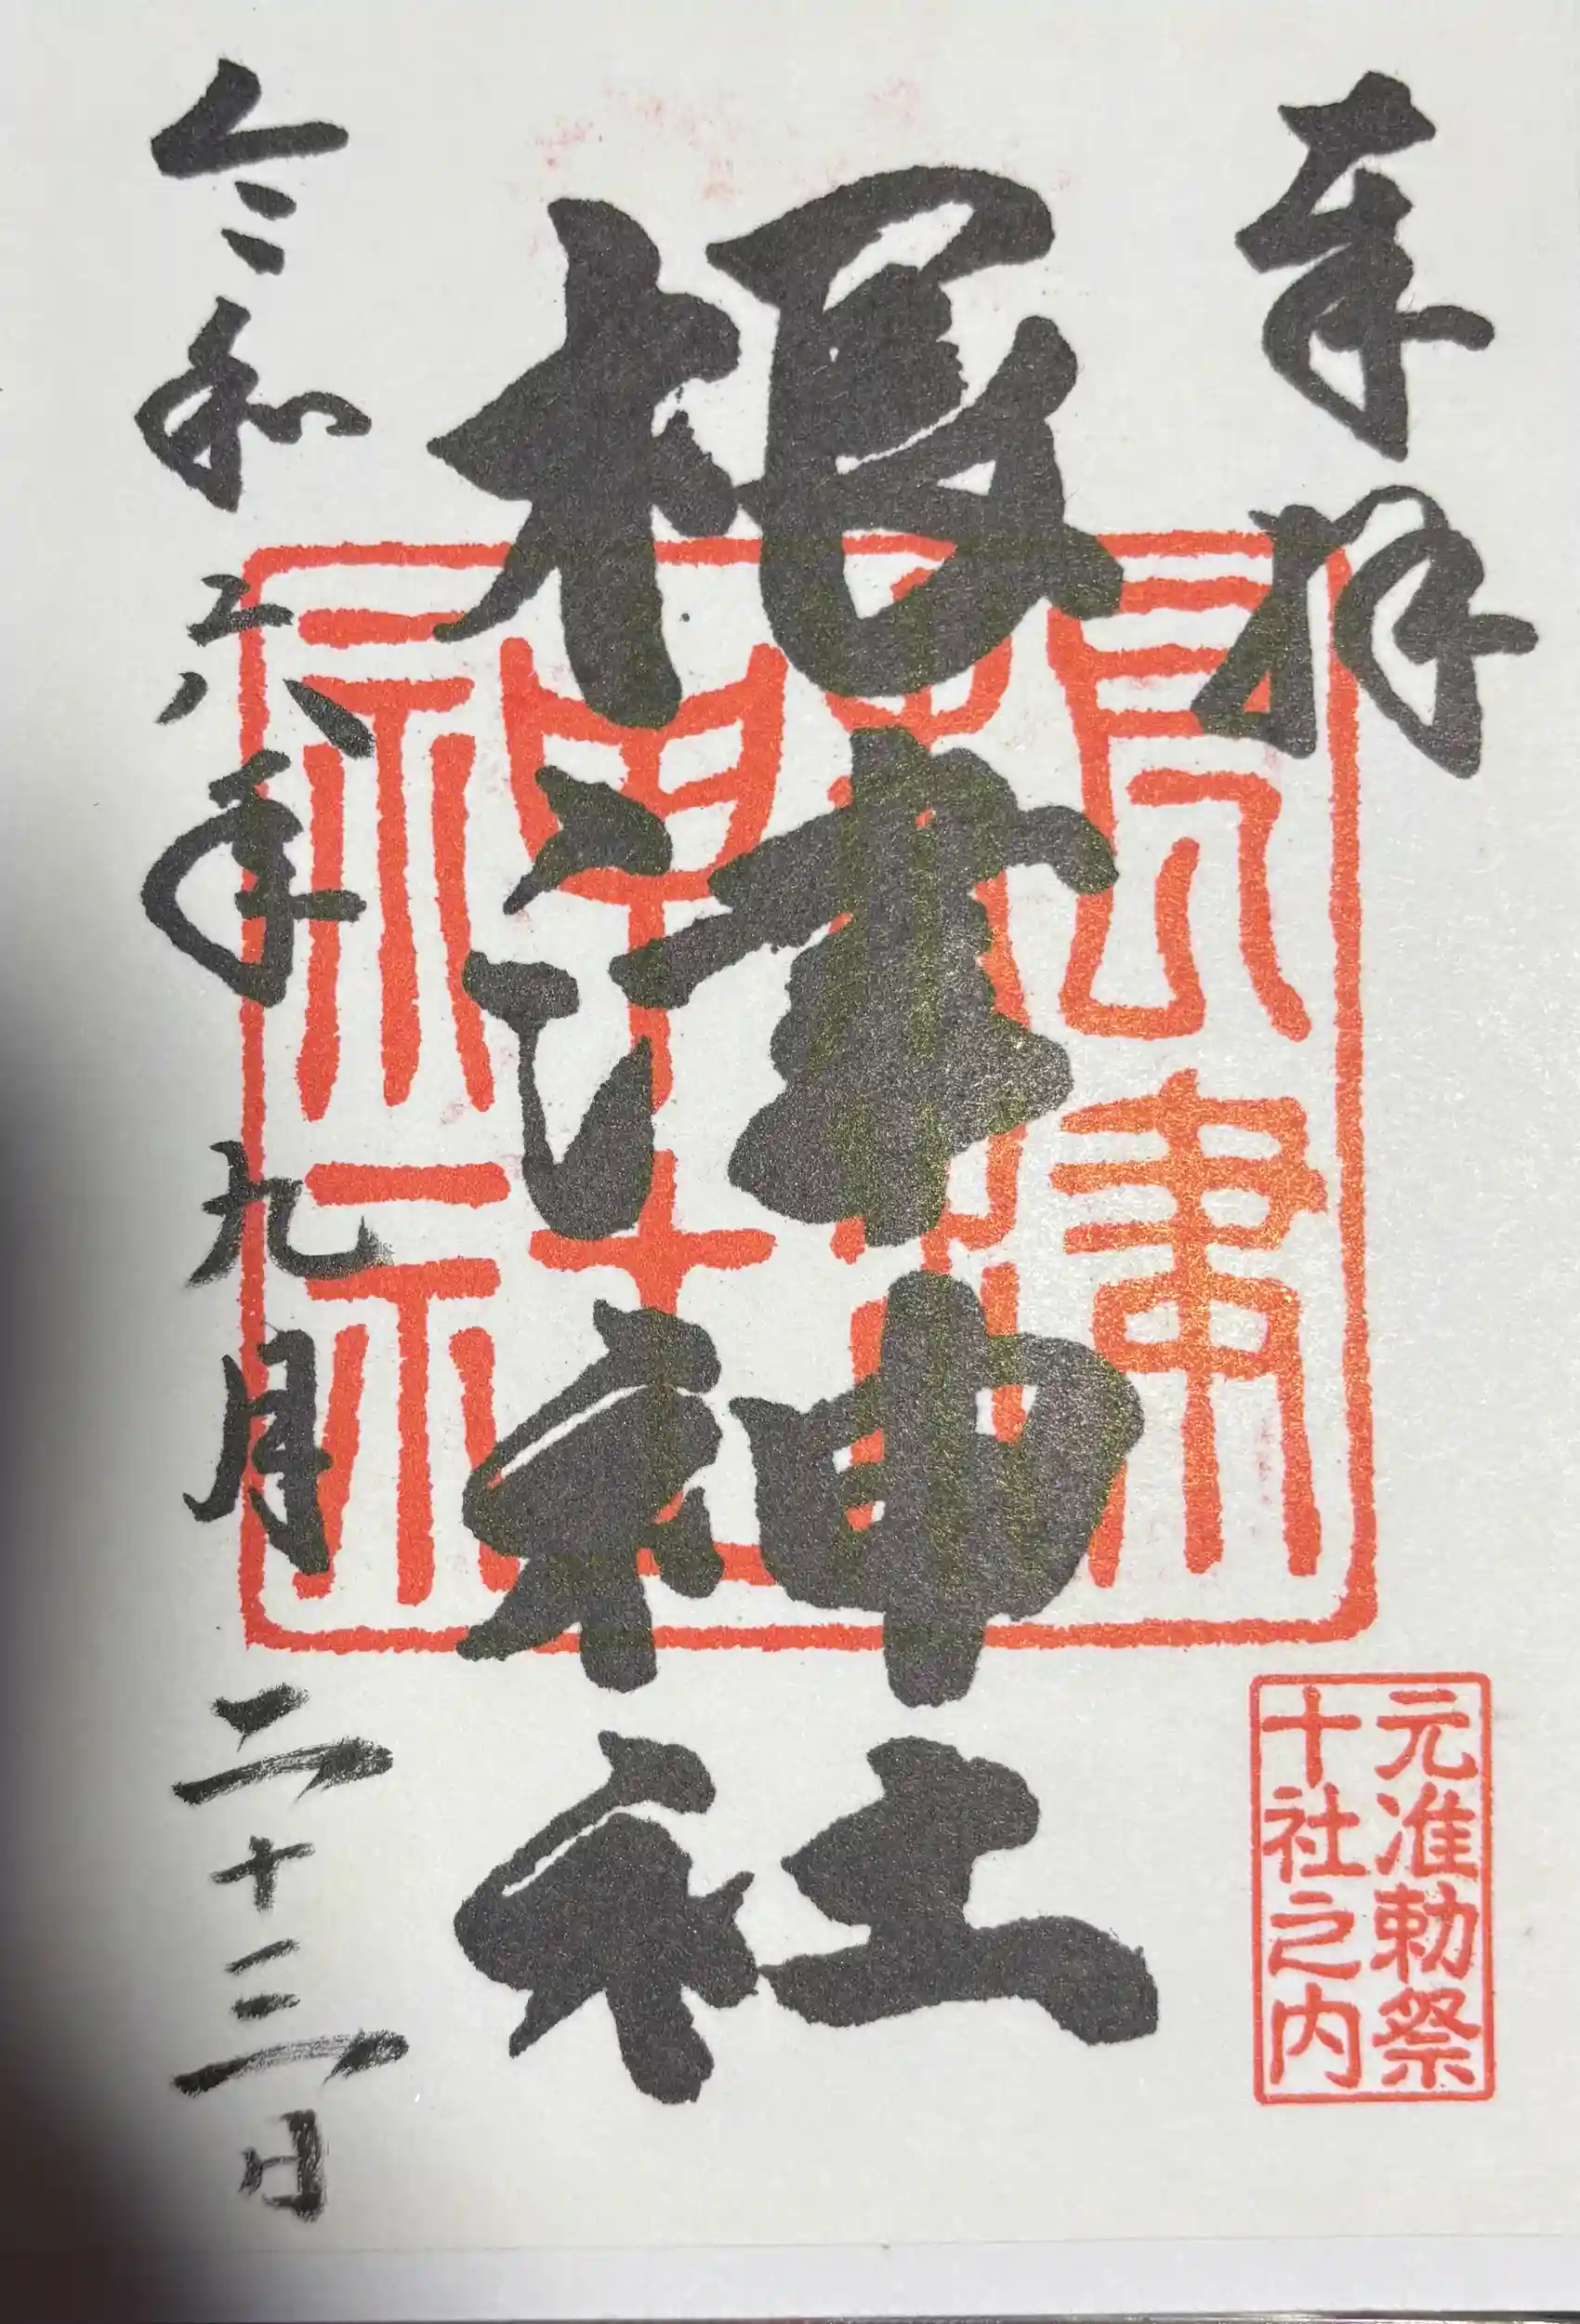 奉拝
根津神社
根津
神社
元准勅祭
十社之内
令和六年九月二十三日